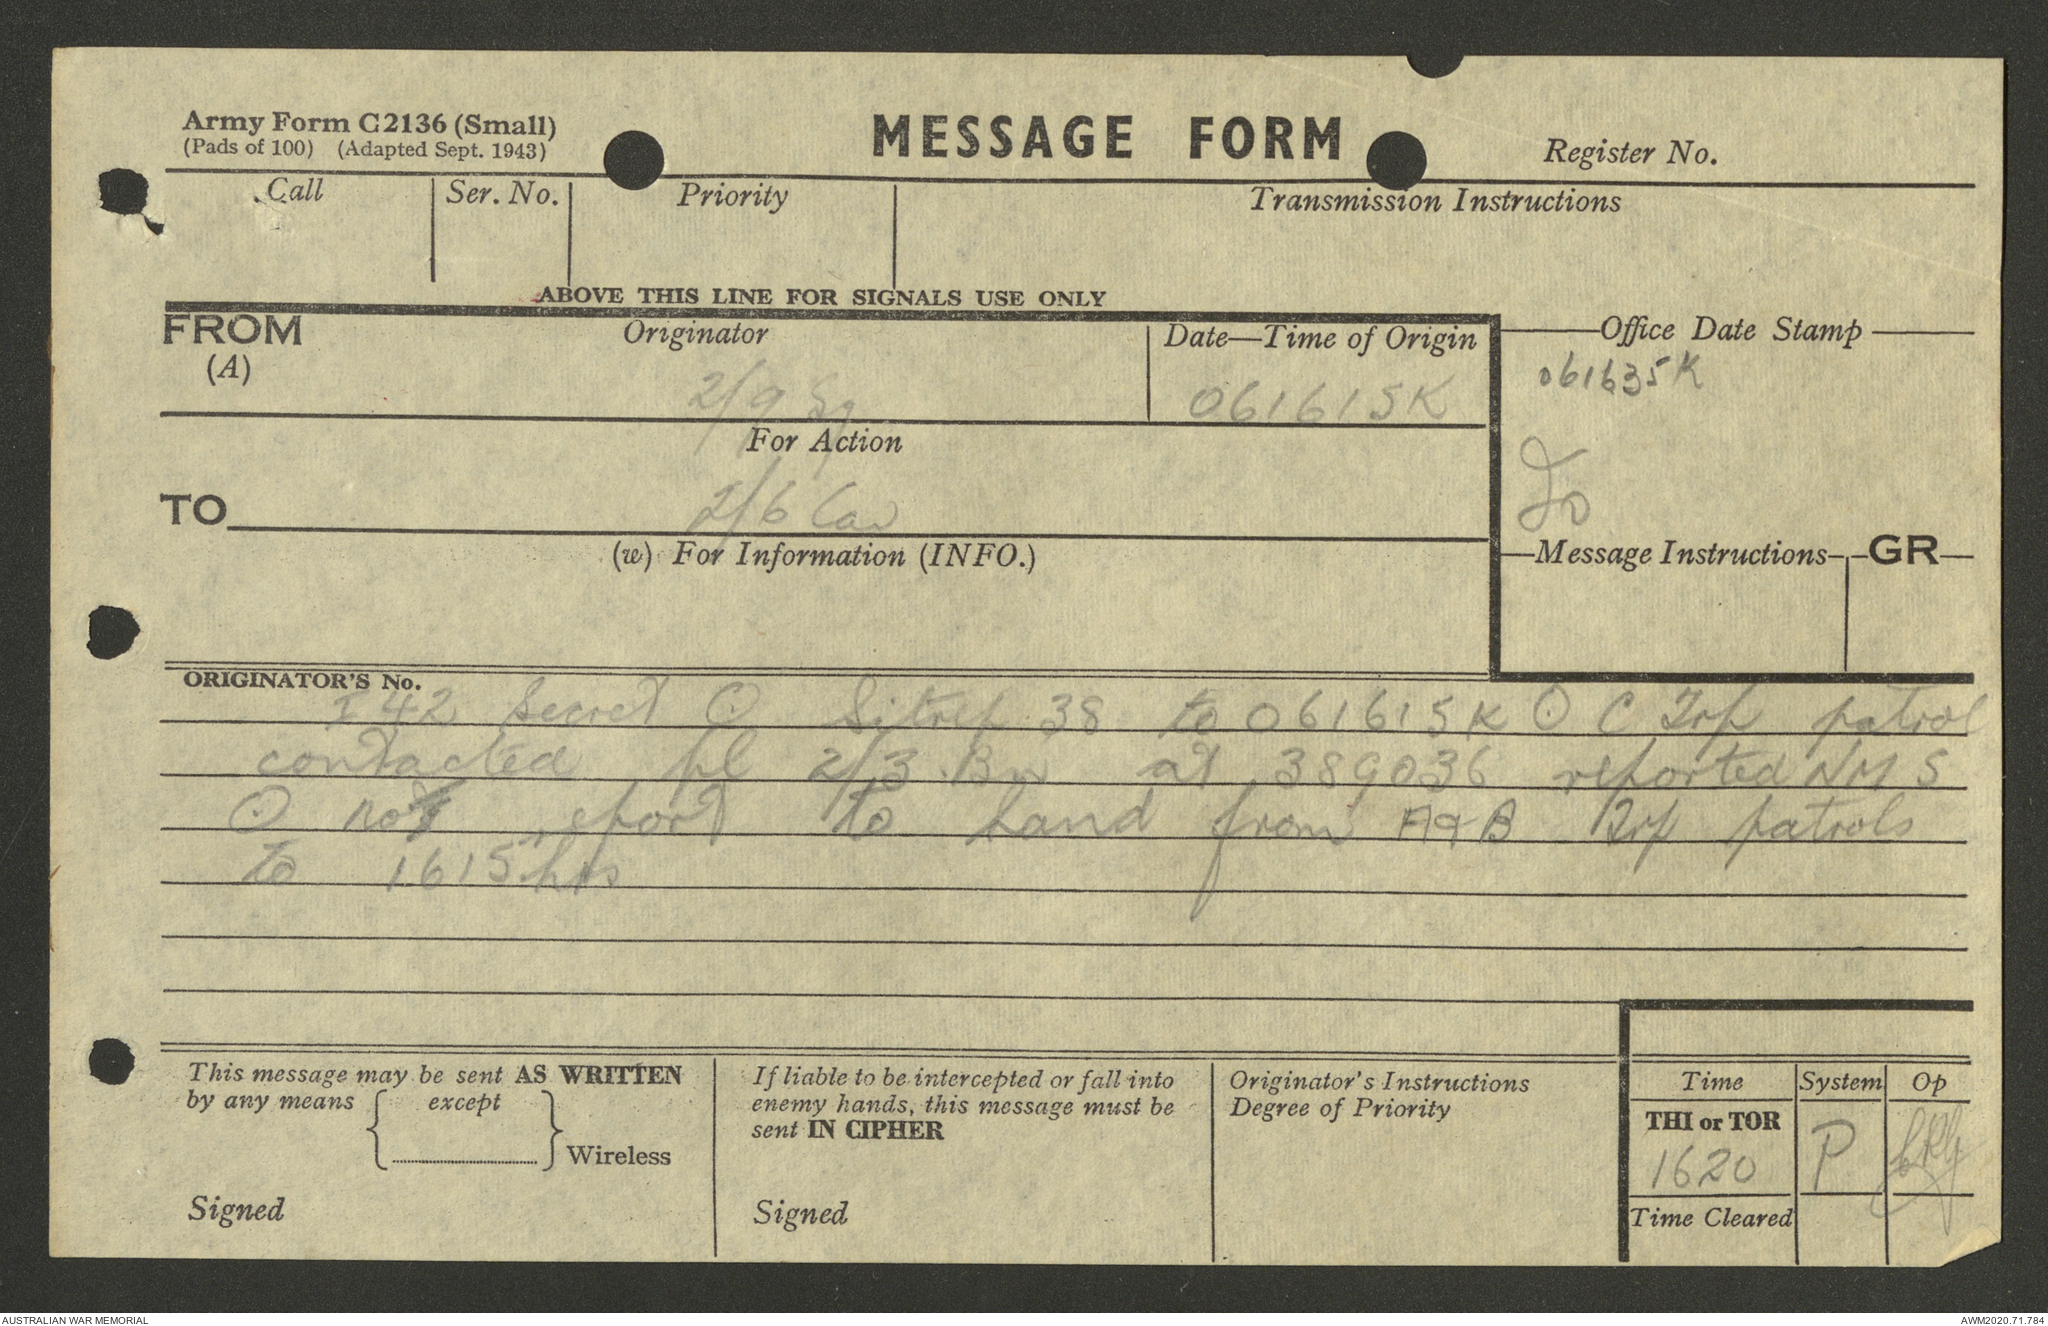 Army Form C2136 (Small)
(Pads of 100) (Adapted Sept. 1943)
MESSAGE FORM
Register No.
Call
Ser. No.
Priority
Transmission Instructions
ABOVE THIS LINE FOR SIGNALS USE ONLY
FROM
(A)
Originator
2/9 Sq
Date—Time of Origin
061615K
Office Date Stamp
061635K
For Action
TO
2/6 Cav
(w) For Information (INFO.)
Message Instructions
GR
ORIGINATOR'S No.
I 42 Secret O Sitrep 38 to 061615K O C Trp patrol
contacted pl 2/3 Bn at 389036 reported NMS
O not report to hand from A & B Trp patrols
to 1615 hrs
This message may be sent AS WRITTEN
by any means except
Wireless
Signed
If liable to be intercepted or fall into
enemy hands, this message must be
sent IN CIPHER
Signed
Originator's Instructions
Degree of Priority
Time
System
Op
THI or TOR
1620
P
Time Cleared
AUSTRALIAN WAR MEMORIAL
AWM2020.71.784